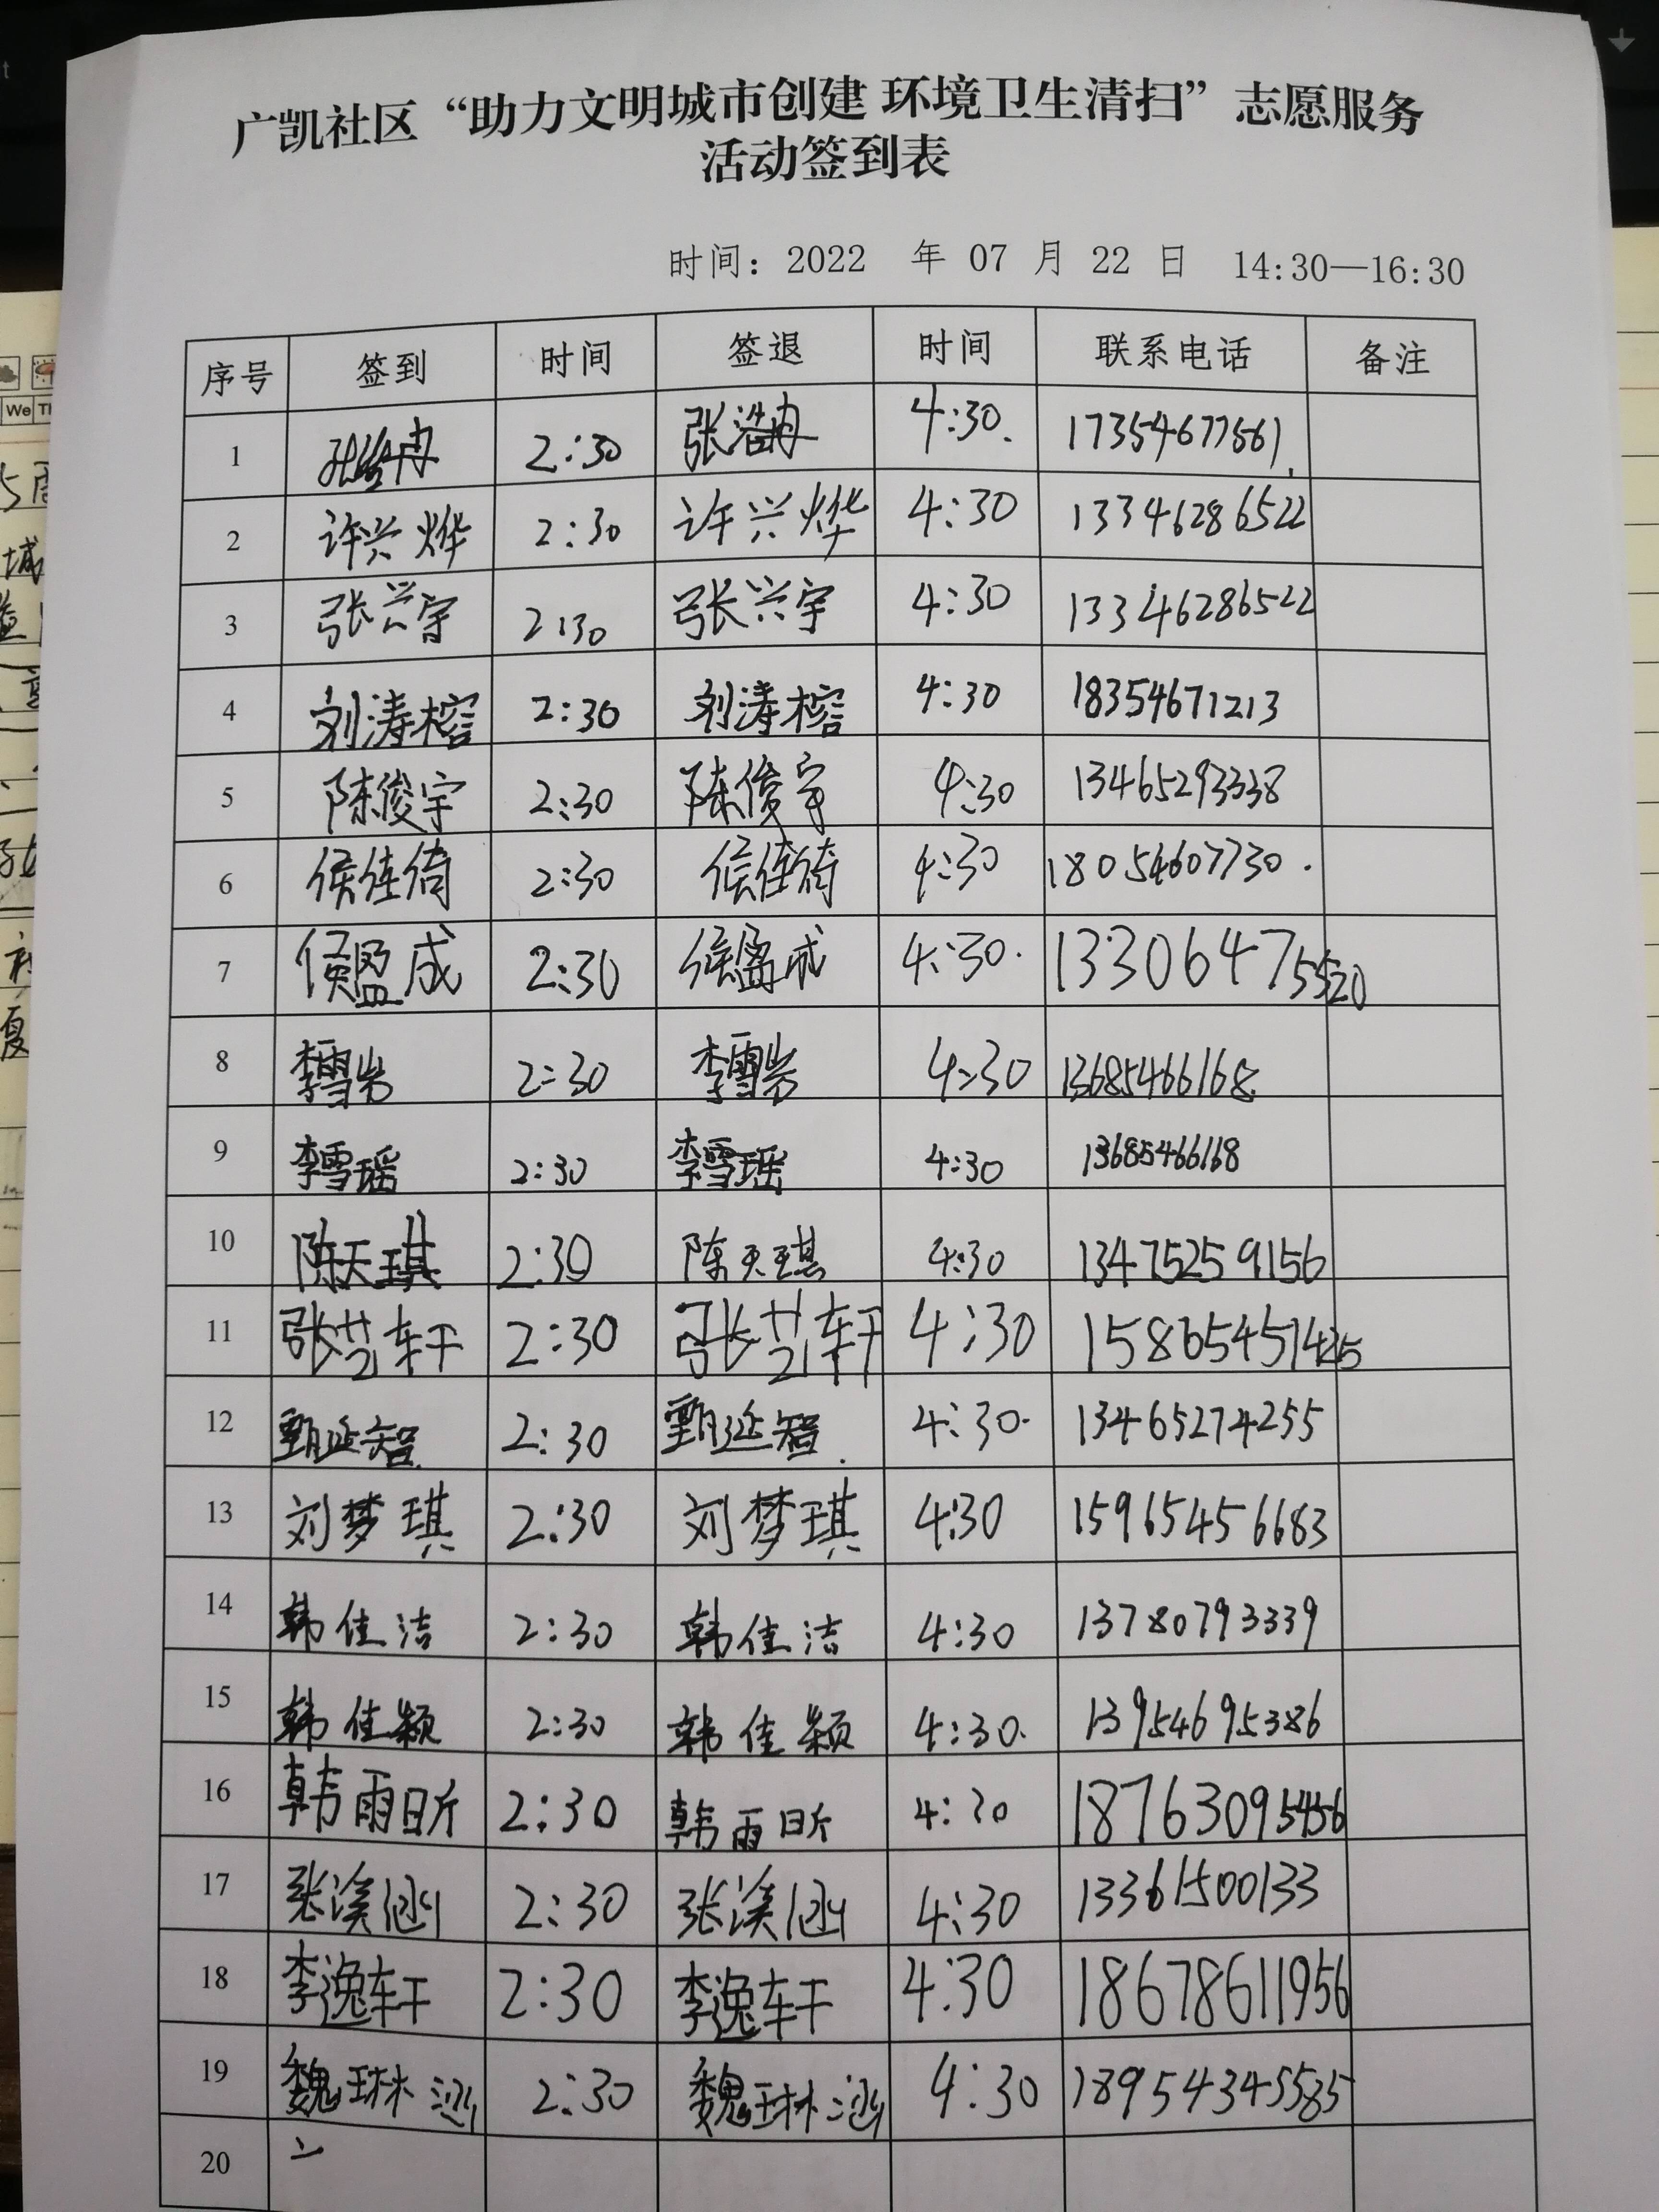 广凯社区“助力文明城市创建 环境卫生清扫”志愿服务
活动签到表
时间：2022 年 07 月 22 日 14:30—16:30
序号 签到 时间 签退 时间 联系电话 备注
1 张浩冉 2:30 张浩冉 4:30. 17354677561
2 许兴烨 2:30 许兴烨 4:30 13346286522
3 张兴宇 2:30 张兴宇 4:30 13346286522
4 刘涛榕 2:30 刘涛榕 4:30 18354671213
5 陈俊宇 2:30 陈俊宇 4:30 13465293338
6 侯佳倚 2:30 侯佳倚 4:30 18054607730.
7 侯盈成 2:30 侯盈成 4:30. 13306475520
8 李雪 2:30 李雪 4:30 13685466168
9 李雪瑶 2:30 李雪瑶 4:30 13685466168
10 陈天琪 2:30 陈天琪 4:30 13475259156
11 张艺轩 2:30 张艺轩 4:30 158654514
12 甄延智. 2:30 甄延智. 4:30. 13465274255
13 刘梦琪 2:30 刘梦琪 4:30 15965456683
14 韩佳洁 2:30 韩佳洁 4:30 13780793339
15 韩佳颖 2:30 韩佳颖 4:30. 13954695386
16 韩雨昕 2:30 韩雨昕 4:30 18763095456
17 张溪涵 2:30 张溪涵 4:30 13361500133
18 李逸轩 2:30 李逸轩 4:30 18678611956
19 魏琳涵 2:30 魏琳涵 4:30 18954345585
20
We